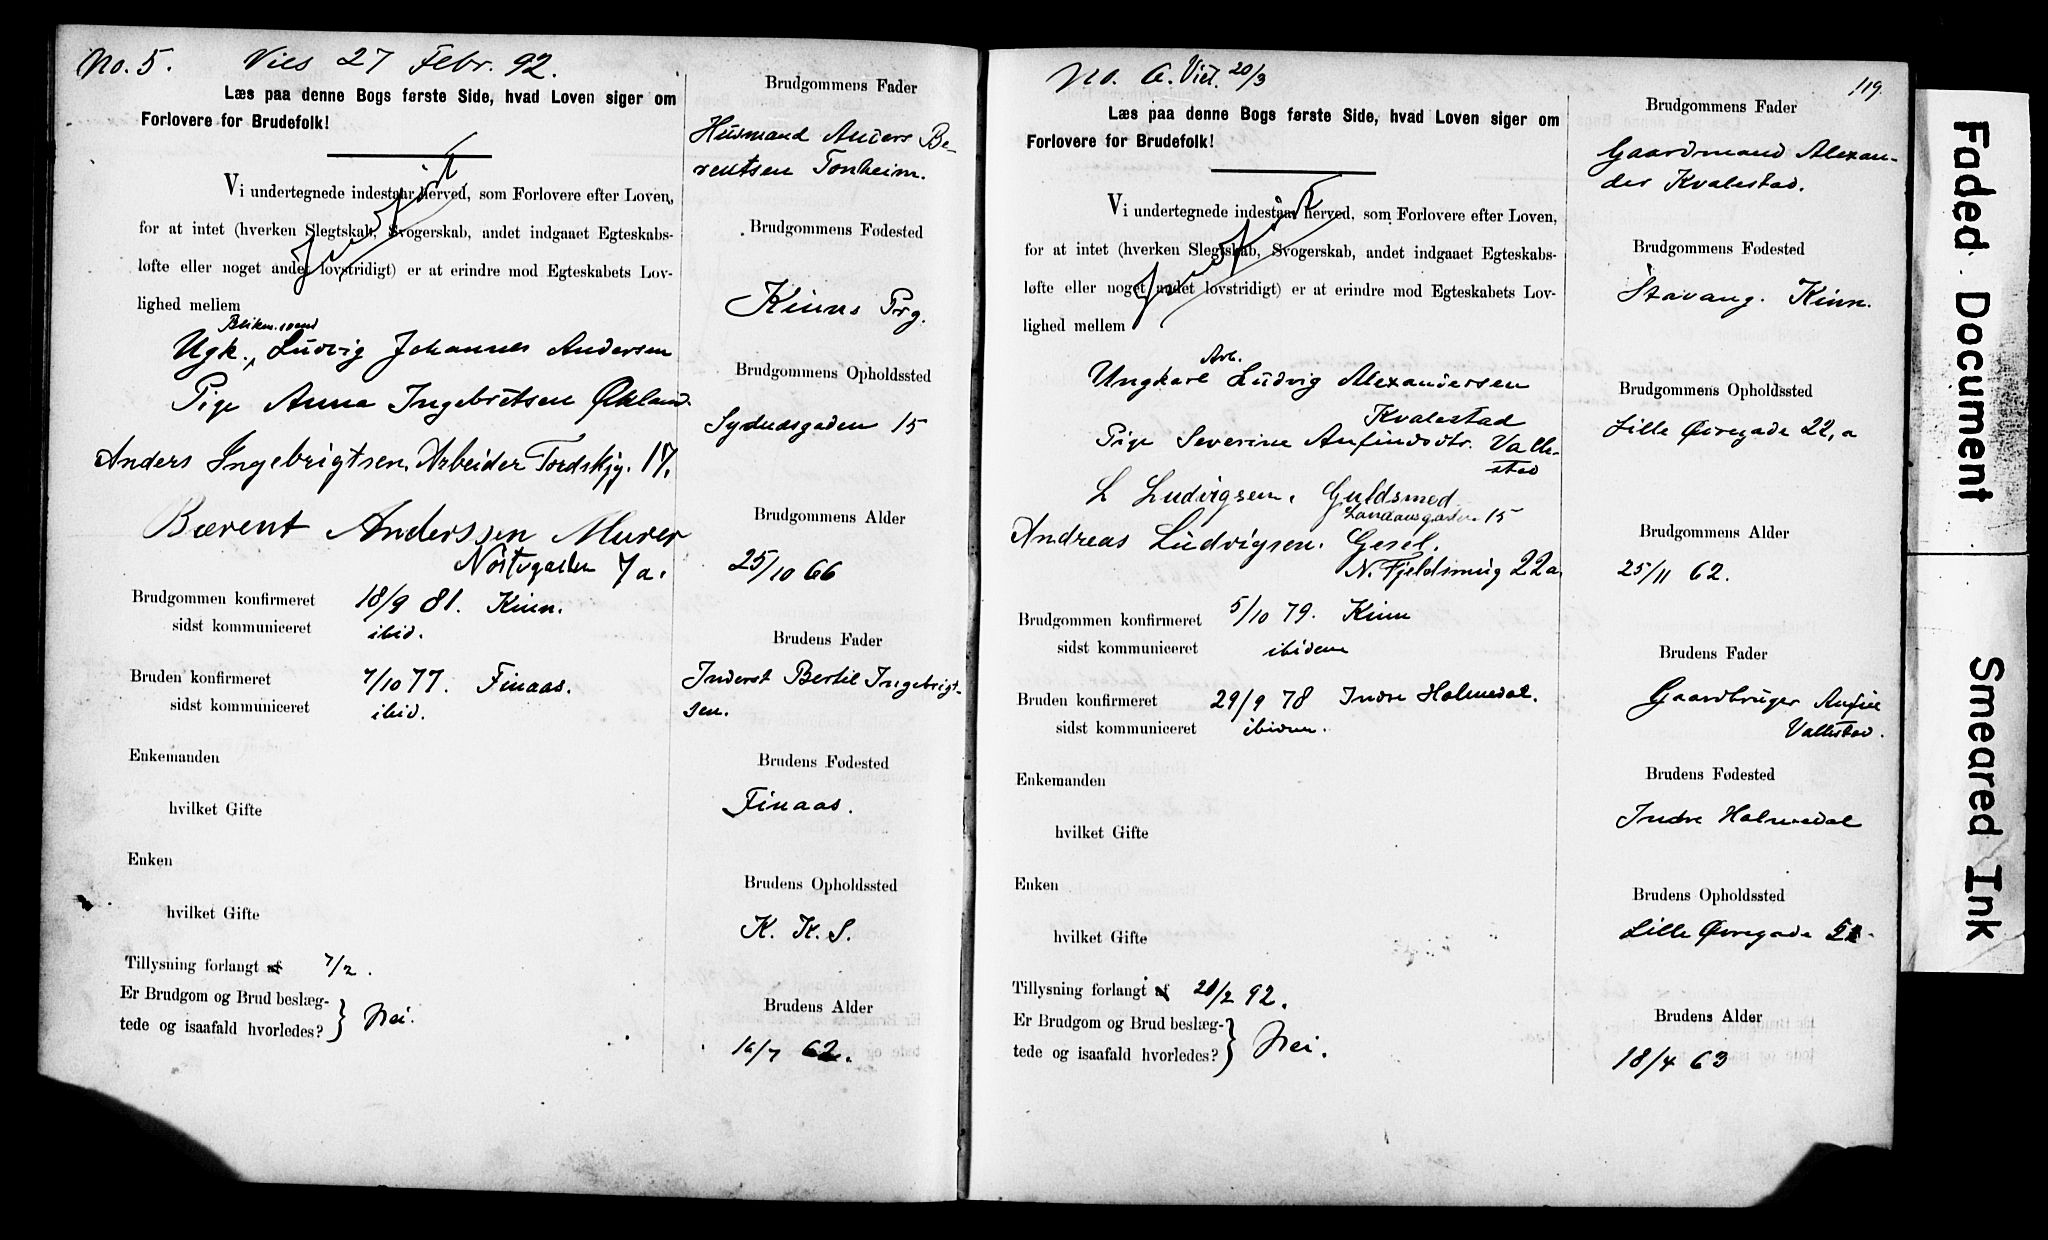 No. 5. Vies 27 Febr. 92.
Læs paa denne Bogs første Side, hvad Loven siger om
Forlovere for Brudefolk!
Vi undertegnede indestaar herved, som Forlovere efter Loven,
for at intet (hverken Slegtskab, Svogerskab, andet indgaaet Egteskabs-
løfte eller noget andet lovstridigt) er at erindre mod Egteskabets Lov-
lighed mellem
Ugk. Ludvig Johannes Andersen
Pige Anna Ingebretsen Økland.
Anders Ingebrigtsen. Arbeider Tordskjg. 17.
Bærent Anderssen Murer
Nøstegaden 7a.
Brudgommen konfirmeret 18/9 81. Kinn.
sidst kommuniceret ibid.
Bruden konfirmeret 7/10 77. Finaas.
sidst kommuniceret ibid.
Enkemanden
hvilket Gifte
Enken
hvilket Gifte
Tillysning forlangt af 7/2.
Er Brudgom og Brud beslæg-
tede og isaafald hvorledes? Nei.
Brudgommens Fader
Husmand Anders Be-
rentsen Tonheim.
Brudgommens Fødested
Kinns Prg.
Brudgommens Opholdssted
Sydnesgaden 15
Brudgommens Alder
25/10 66
Brudens Fader
Inderst Bertil Ingebrigt-
sen.
Brudens Fødested
Finaas.
Brudens Opholdssted
K. K. S.
Brudens Alder
16/7 62.
No. 6. Viet. 20/3
Læs paa denne Bogs første Side, hvad Loven siger om
Forlovere for Brudefolk!
Vi undertegnede indestaar herved, som Forlovere efter Loven,
for at intet (hverken Slegtskab, Svogerskab, andet indgaaet Egteskabs-
løfte eller noget andet lovstridigt) er at erindre mod Egteskabets Lov-
lighed mellem
Arb.
Ungkarl Ludvig Alexandersen
Kvalestad
Pige Severine Anfindsdtr. Valle-
stad
L Ludvigsen. Guldsmed
15
Andreas Ludvigsen. Gesel.
N. Fjeldsmug 22a.
Brudgommen konfirmeret 5/10 79. Kinn
sidst kommuniceret ibidem
Bruden konfirmeret 29/9 78 Indre Holmedal.
sidst kommuniceret ibidem.
Enkemanden
hvilket Gifte
Enken
hvilket Gifte
Tillysning forlangt af 20/2 92.
Er Brudgom og Brud beslæg-
tede og isaafald hvorledes? Nei.
119.
Brudgommens Fader
Gaardmand Alexan-
der Kvalestad.
Brudgommens Fødested
Stavang. Kinn.
Brudgommens Opholdssted
Lille Øvregade 22,a
Brudgommens Alder
25/11 62.
Brudens Fader
Gaardbruger Anfin
Vallestad.
Brudens Fødested
Indre Holmedal
Brudens Opholdssted
Lille Øvregade
Brudens Alder
18/4 63
Faded Document
Smeared Ink